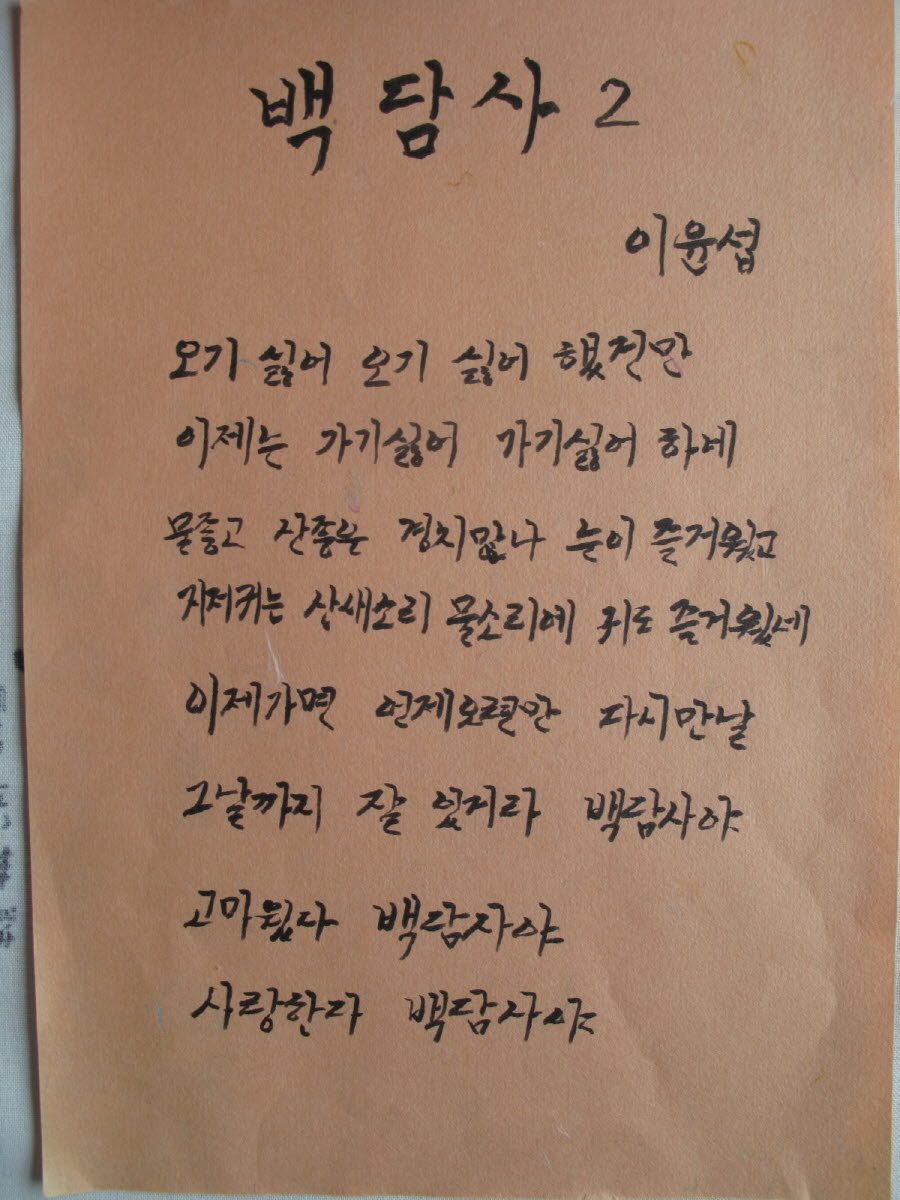 백담사 2
이윤섭
오기 싫어 오기 싫어 했건만
이제는 가기싫어 가기싫어 하네
물좋고 산좋은 경치만나 눈이 즐거웠고
지저귀는 산새소리 물소리에 귀도 즐거웠네
이제가면 언제오련만 다시만날
그날까지 잘 있거라 백담사야
고마웠다 백담사야
사랑한다 백담사야